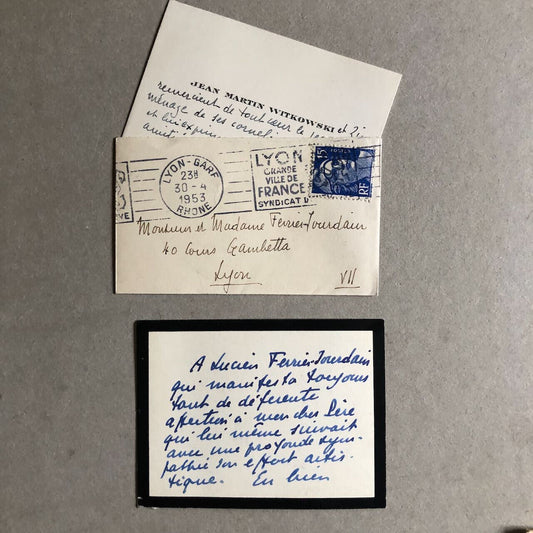 JEAN MARTIN WITKOWSKI et
remercient de tout coeur le
ménage de ses
et lui
LYON-GARE
23H
30-4
1953
RHONE
LYON
GRANDE
VILLE DE
FRANCE
SYNDICAT D'
15F
RF
Monsieur et Madame Ferrier-Jourdain
40 Cours Gambetta
Lyon VII
A Lucien Ferrier-Jourdain
qui manifesta toujours
tant de déférente
affection à mon cher Père
qui lui même suivait
avec une profonde sym-
pathie son effort artis-
tique. En bien